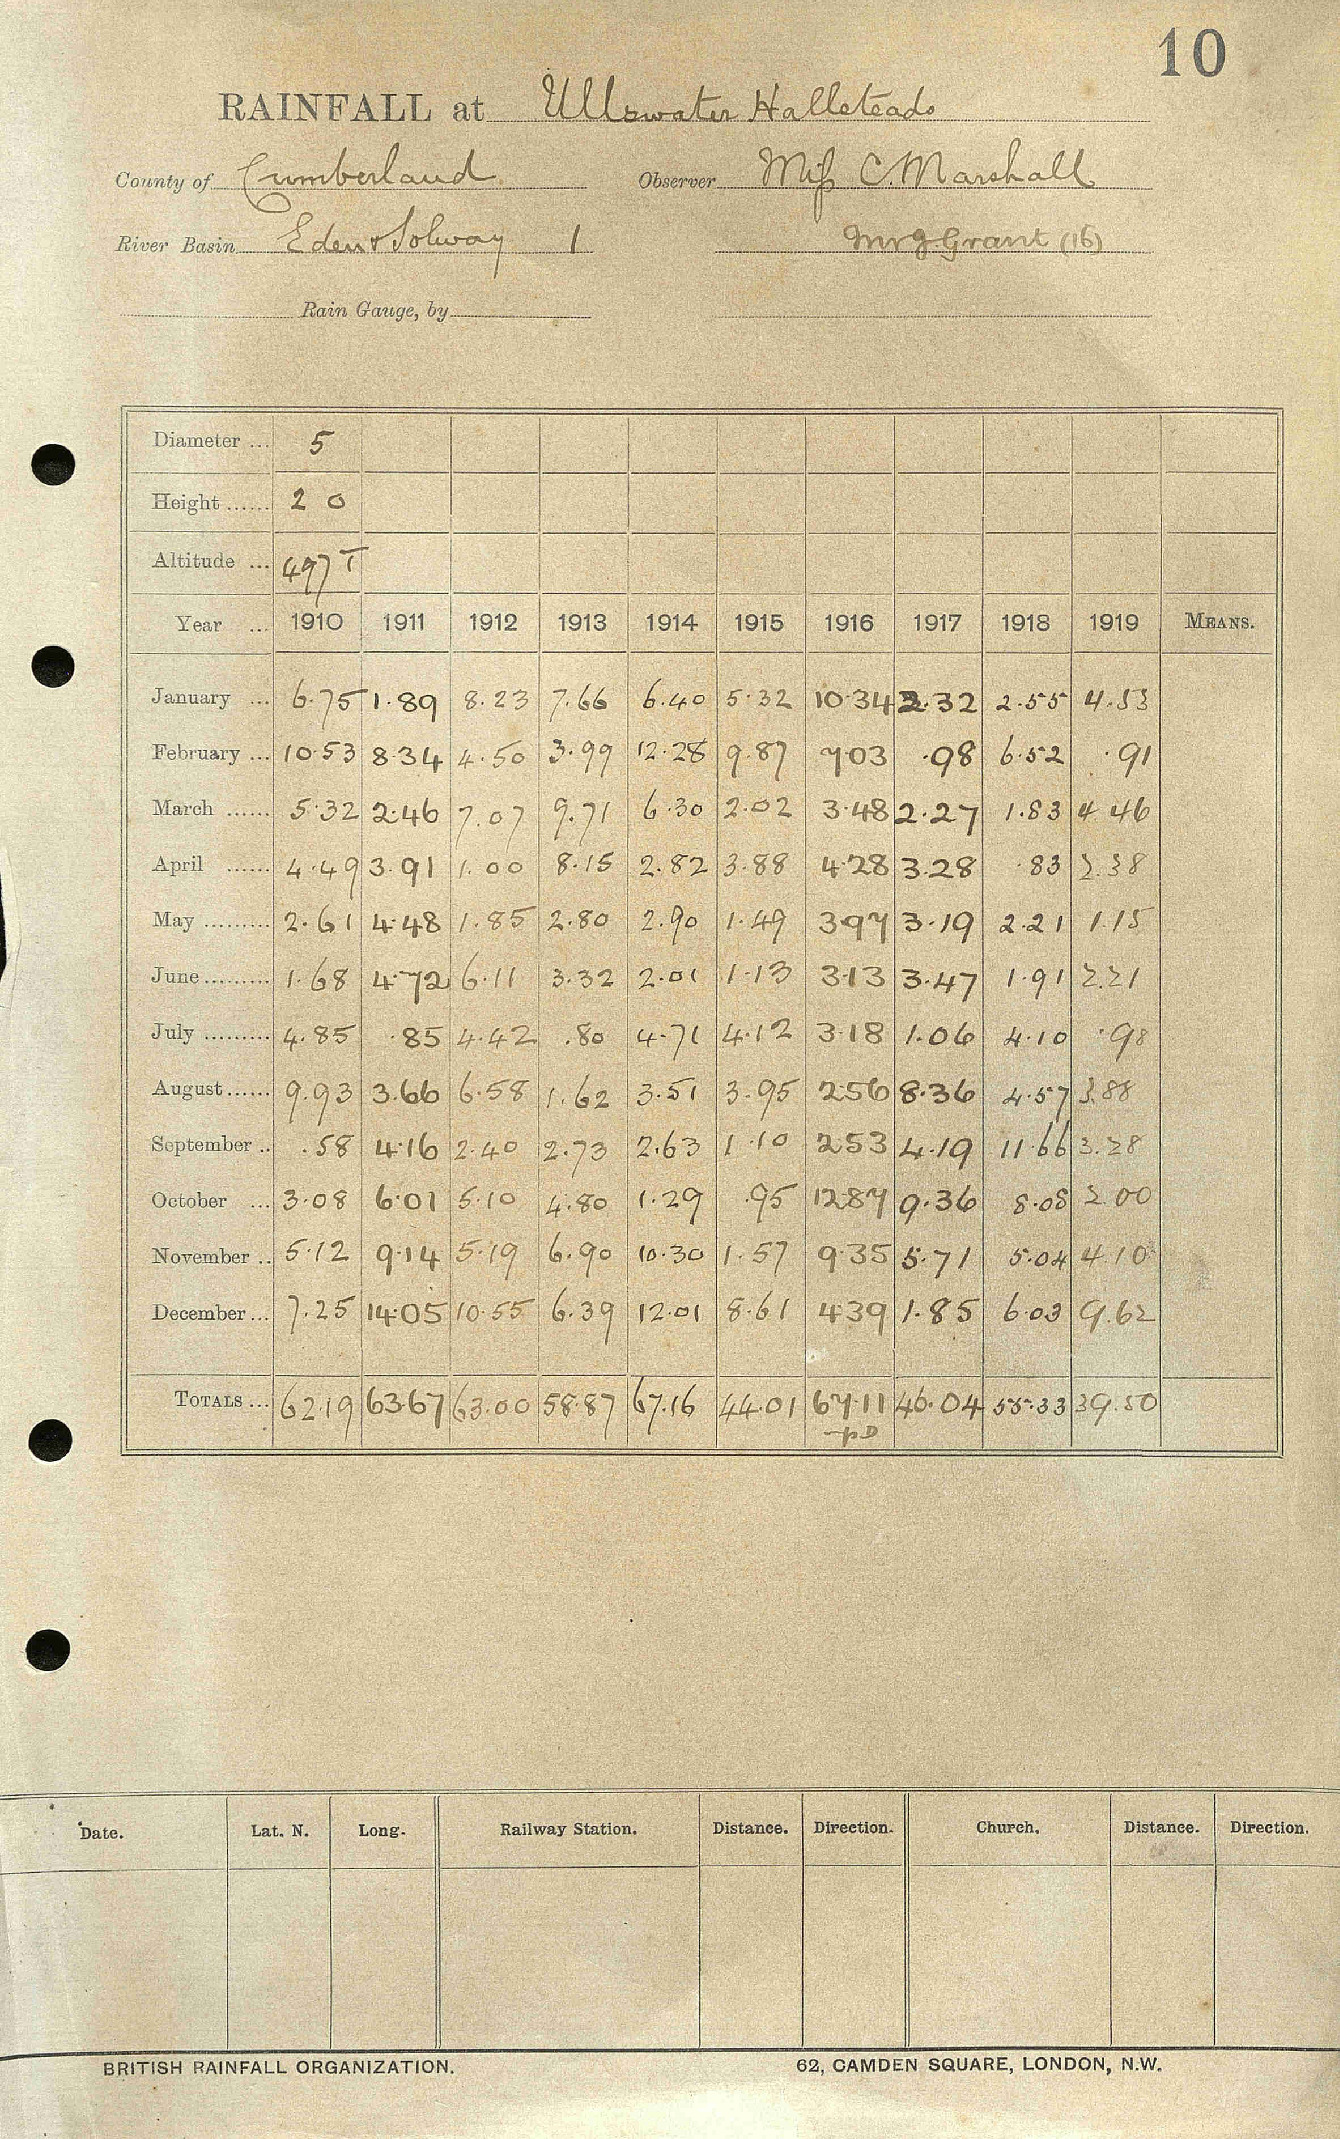 10
RAINFALL at Ullswater Hallsteads
County of Cumberland Observer Miss C. Marshall
River Basin Eden & Solway 1 Mr J Grant (16)
Rain Gauge, by
Diameter ... 5
Height ...... 2 0
Altitude ... 497 T
Year ... 1910 1911 1912 1913 1914 1915 1916 1917 1918 1919 MEANS.
January ... 6.75 1.89 8.23 7.66 6.40 5.32 10.34 2.32 2.55 4.53
February ... 10.53 8.34 4.50 3.99 12.28 9.87 7.03 .98 6.52 .91
March ...... 5.32 2.46 7.07 9.71 6.30 2.02 3.48 2.27 1.83 4.46
April ...... 4.49 3.91 1.00 8.15 2.82 3.88 4.28 3.28 .83 2.38
May ......... 2.61 4.48 1.85 2.80 2.90 1.49 3.97 3.19 2.21 1.15
June ......... 1.68 4.72 6.11 3.32 2.01 1.13 3.13 3.47 1.91 2.21
July ......... 4.85 .85 4.42 .80 4.71 4.12 3.18 1.06 4.10 .98
August ...... 9.93 3.66 6.58 1.62 3.51 3.95 2.56 8.36 4.57 3.88
September .. .58 4.16 2.40 2.73 2.63 1.10 2.53 4.19 11.66 3.28
October ... 3.08 6.01 5.10 4.80 1.29 .95 12.87 9.36 8.08 2.00
November .. 5.12 9.14 5.19 6.90 10.30 1.57 9.35 5.71 5.04 4.10
December ... 7.25 14.05 10.55 6.39 12.01 8.61 4.39 1.85 6.03 9.62
TOTALS ... 62.19 63.67 63.00 58.87 67.16 44.01 67.11 46.04 55.33 39.50
Date. Lat. N. Long. Railway Station. Distance. Direction. Church. Distance. Direction.
BRITISH RAINFALL ORGANIZATION. 62, CAMDEN SQUARE, LONDON, N.W.